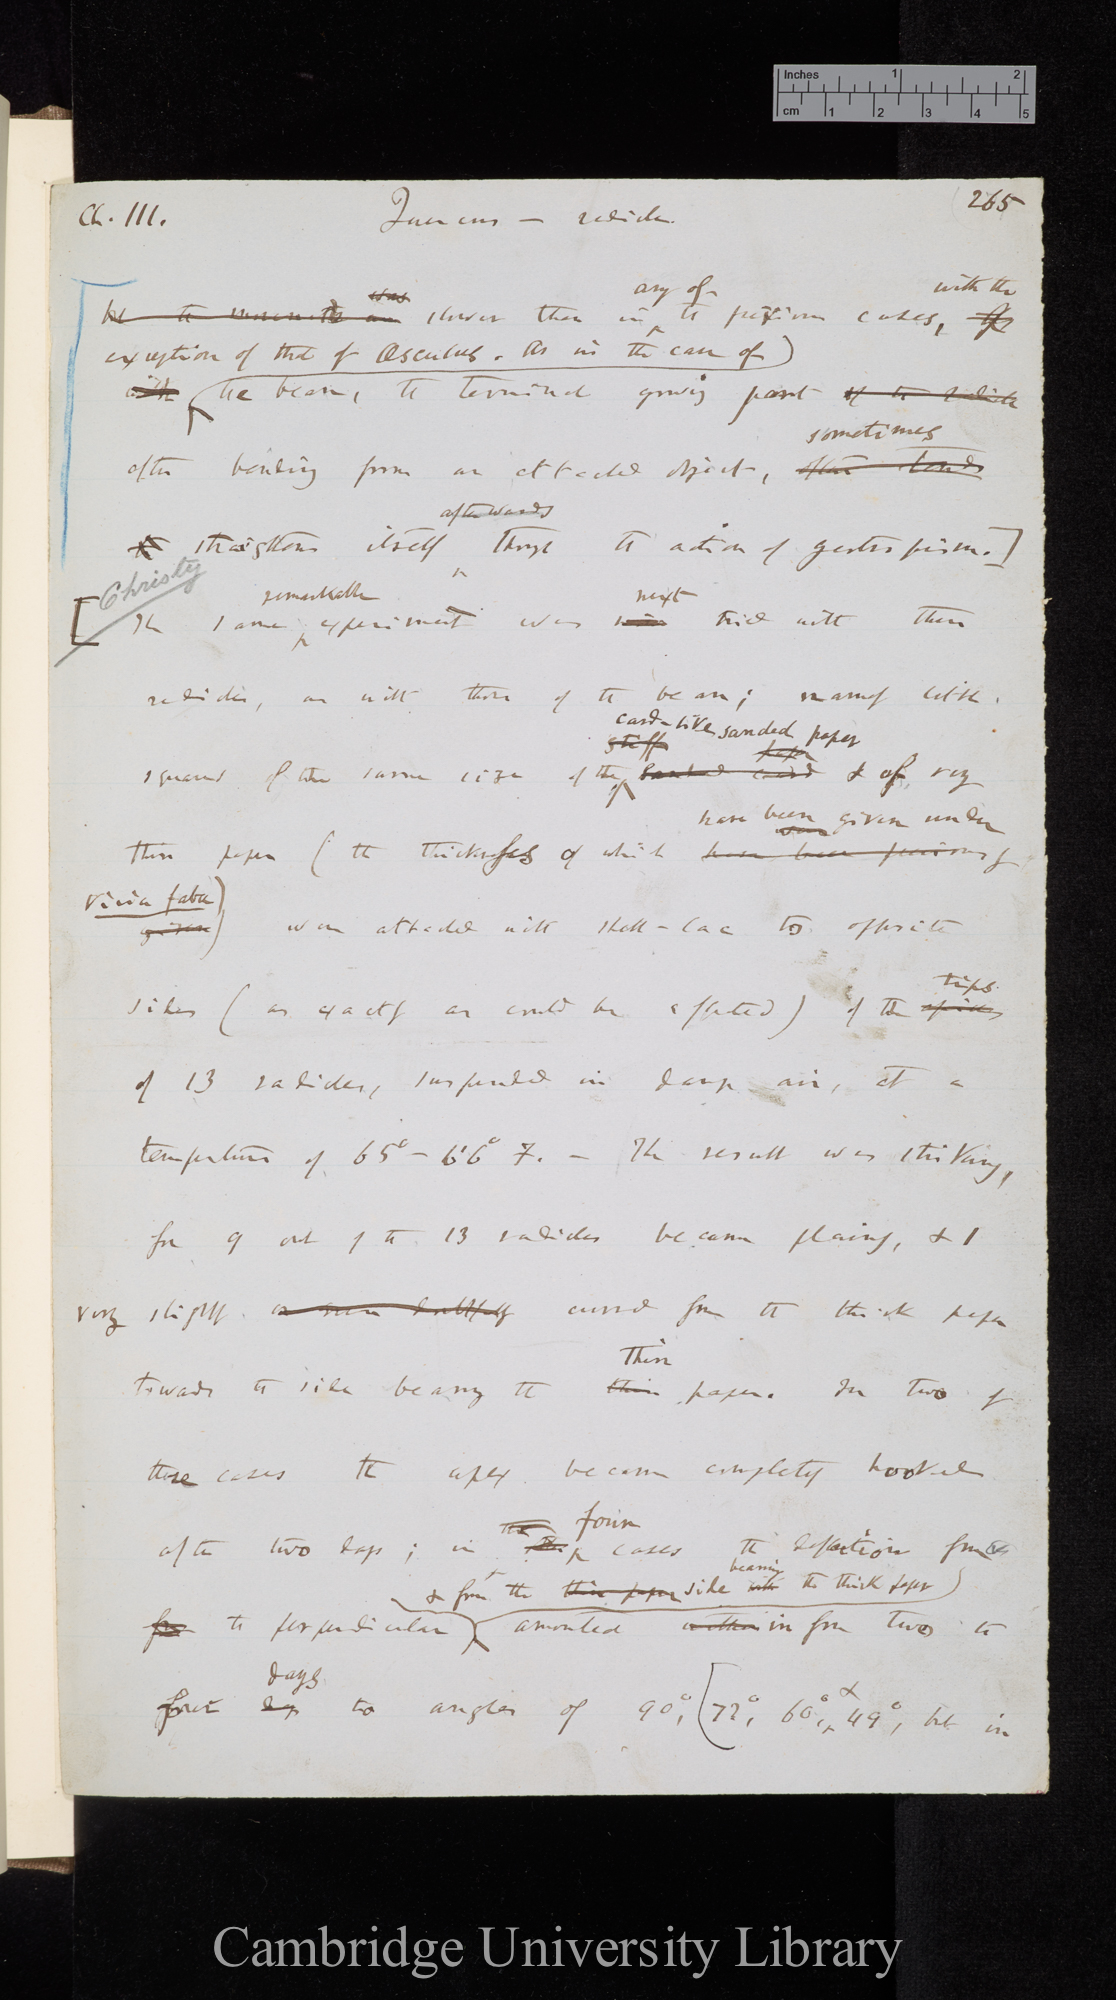 Inches 1 2
cm 1 2 3 4 5
Ch. III. Quercus — radicle. 265
was any of with the
be the movement was slower than in the previous cases,
exception of that of Æsculus. As in the case of
with the bean, the terminal growing part of the radicle
sometimes
after bending from an attached object, often tends
afterwards
to straightens itself through the action of geotropism.]
Christy
remarkable next
[The same experiment was now tried with these
radicles, as with those of the bean; namely little
card-like sanded paper
stiff paper
squares of the same size of the sanded card & of very
have been given under
were
thin paper (the thicknesses of which have been previously
Vicia faba)
given) were attached with shell-lac to opposite
tips
sides (as exactly as could be effected) of the apices
of 13 radicles, suspended in damp air, at a
temperature of 65° – 66° F. – The result was striking,
for 9 out of the 13 radicles became plainly, & 1
very slightly curved from the thick paper
thin
towards the side bearing the thin paper. In two of
these cases the apex became completely hooked
the four
after two days; in cases the deflection from
bearing
& from the thin paper side with the thick paper)
for the perpendicular amounted within in from two to
days
four days to angles of 90°, [72°, 60°, & 49°, but in
Cambridge University Library